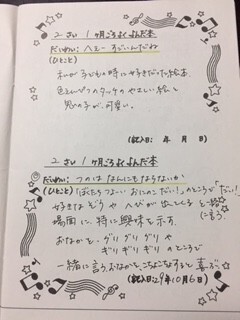 2さい 1ヶ月ごろによんだ本
だいめい：へえー すごいんだね
（ひとこと）
私が子どもの時に好きだった絵本。
色えんぴつのタッチのやさしい絵と
鬼の子が、可愛い。
（記入日：　年　月　日）
2さい 1ヶ月ごろによんだ本
だいめい：つのはなんにもならないか
（ひとこと）「ぼたろうつよい おにのこだい！」のところで「だい！」
と一緒に言う。
好きなぞうやへびが出てくる
場面に、特に興味を示す。
おなかを・グリグリグリや
ギリギリギリのところで
一緒に言う。おなかをこちょこちょすると喜ぶ
（記入日：29年10月6日）